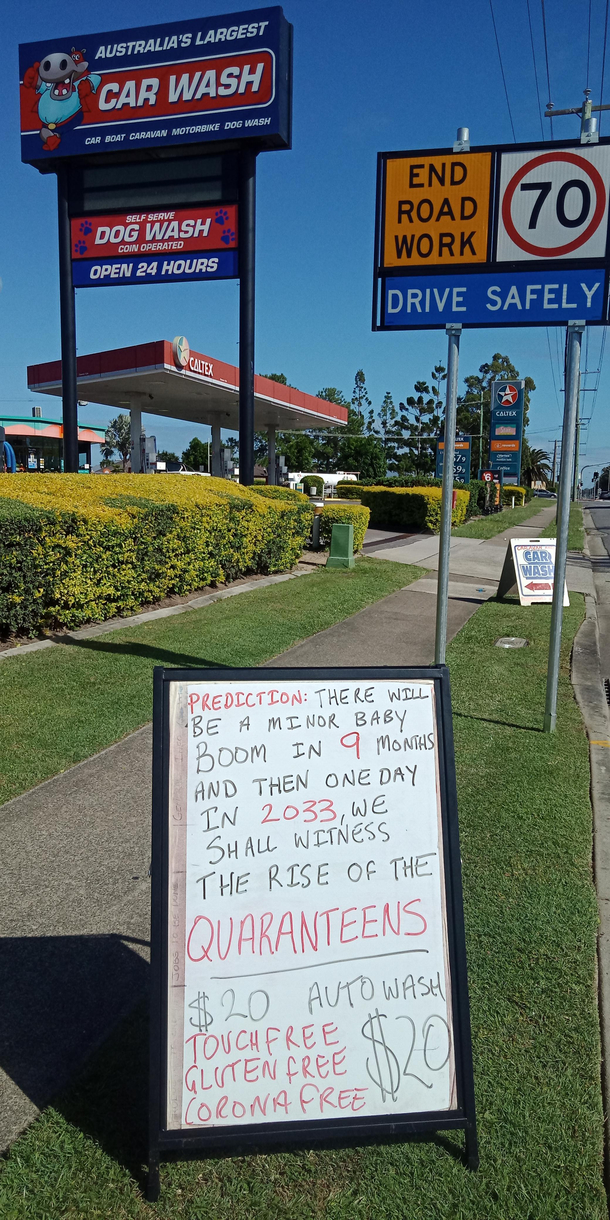 AUSTRALIA'S LARGEST
CAR WASH
CAR BOAT CARAVAN MOTORBIKE DOG WASH
SELF SERVE
DOG WASH
COIN OPERATED
OPEN 24 HOURS
END
ROAD
WORK
70
DRIVE SAFELY
CALTEX
CALTEX
CAR
WASH
PREDICTION: THERE WILL
BE A MINOR BABY
BOOM IN 9 MONTHS
AND THEN ONE DAY
IN 2033, WE
SHALL WITNESS
THE RISE OF THE
QUARANTEENS
$20 AUTO WASH
TOUCH FREE
GLUTEN FREE
CORONA FREE
$20